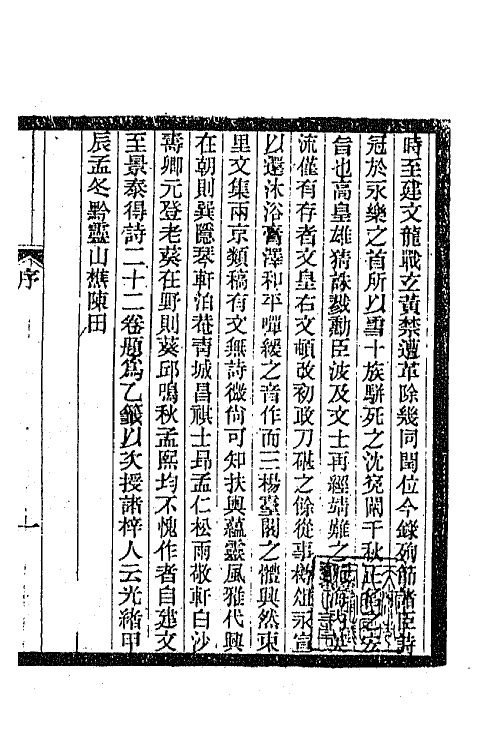 時至建文龍戰玄黃禁遭革除幾同閏位今錄殉節諸臣詩
冠於永樂之首所以雪十族駢死之沈冤闡千秋正
旨也高皇雄猜誅戮勳臣波及文士再經靖難之
流僅有存者文皇右文頓改初政刀碪之餘從事樽俎永宣
以還沐浴膏澤和平嘽緩之音作而三楊臺閣之體興然東
里文集兩京類稿有文無詩微尙可知扶輿蘊靈風雅代興
在朝則巽隱琴軒泊菴靑城昌祺士昻孟仁松雨敬軒白沙
壽卿元登老葵在野則葵邱鳴秋孟熙均不愧作者自建文
至景泰得詩二十二卷題爲乙籤以次授諸梓人云光緒甲
辰孟冬黔靈山樵陳田
序
一